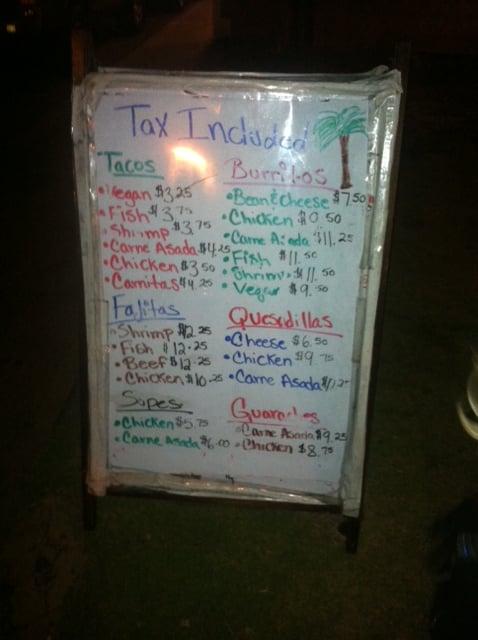 Tax Included
Tacos
Vegan $3.25
Fish $3.75
Shrimp $3.75
Carne Asada $4.25
Chicken $3.50
Carnitas $4.25
Burritos
Bean & Cheese $7.50
Chicken $10.50
Carne Asada $11.25
Fish $11.50
Shrimp $11.50
Vegan $9.50
Fajitas
Shrimp $12.25
Fish $12.25
Beef $12.25
Chicken $10.25
Quesadillas
Cheese $6.50
Chicken $9.75
Carne Asada
Sopes
Chicken $5.75
Carne Asada $6.00
Carne Asada $9.25
Chicken $8.75